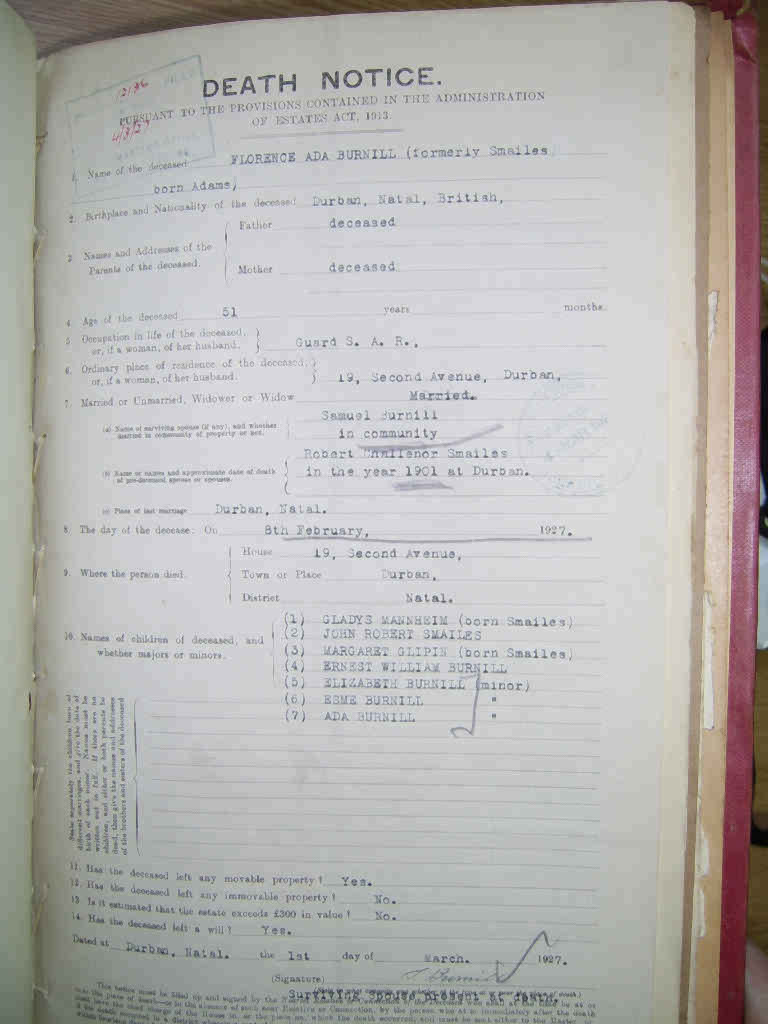 12186
4/3/27
DEATH NOTICE.
PURSUANT TO THE PROVISIONS CONTAINED IN THE ADMINISTRATION
OF ESTATES ACT, 1913.
1. Name of the deceased FLORENCE ADA BURNILL (formerly Smailes
born Adams)
2. Birthplace and Nationality of the deceased Durban, Natal, British,
3. Names and Addresses of the Parents of the deceased.
Father deceased
Mother deceased
4. Age of the deceased 51 years months.
5. Occupation in life of the deceased,
or, if a woman, of her husband. Guard S. A. R.,
6. Ordinary place of residence of the deceased,
or, if a woman, of her husband. 19, Second Avenue, Durban,
7. Married or Unmarried, Widower or Widow Married.
(a) Name of surviving spouse (if any), and whether Samuel Burnill
married in community of property or not. in community
(b) Name or names and approximate date of death Robert Challenor Smailes
of pre-deceased spouse or spouses. in the year 1901 at Durban.
(c) Place of last marriage Durban, Natal.
8. The day of the decease: On 8th February, 1927.
9. Where the person died.
House 19, Second Avenue,
Town or Place Durban,
District Natal.
10. Names of children of deceased, and
whether majors or minors.
(1) GLADYS MANNHEIM (born Smailes)
(2) JOHN ROBERT SMAILES
(3) MARGARET GLIPIN (born Smailes)
(4) ERNEST WILLIAM BURNILL
(5) ELIZABETH BURNILL (minor)
(6) ESME BURNILL "
(7) ADA BURNILL "
State separately the children born of
different marriages, and give the date of
birth of each minor. Names must be
written out in full. If there are no
children, and either or both parents be
dead, then give the names and addresses
of the brothers and sisters of the deceased
11. Has the deceased left any movable property? Yes.
12. Has the deceased left any immovable property? No.
13. Is it estimated that the estate exceeds £300 in value? No.
14. Has the deceased left a will? Yes.
Dated at Durban, Natal. the 1st day of March. 1927.
(Signature)
Surviving Spouse present at death.
This notice must be filled up and signed by the